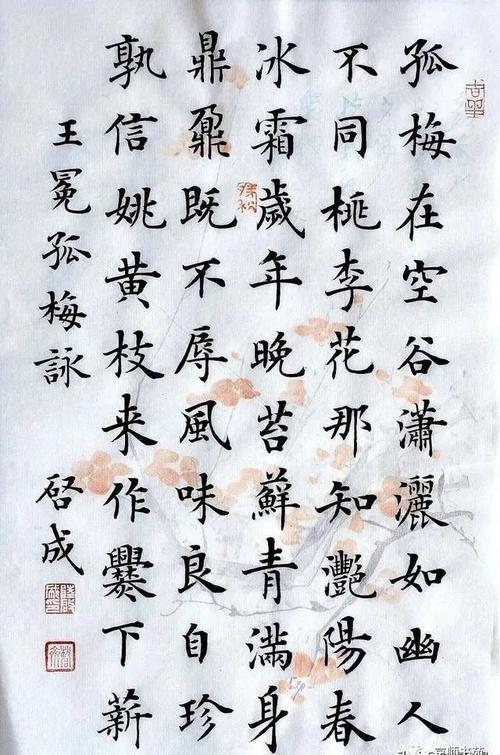 孤梅在空谷瀟灑如幽人
不同桃李花那知灩陽春
冰霜歲年晚苔蘚青滿身
鼎鼐既不辱風味良自珍
孰信姚黄枝来作爨下薪
王冕孤梅詠 啓成